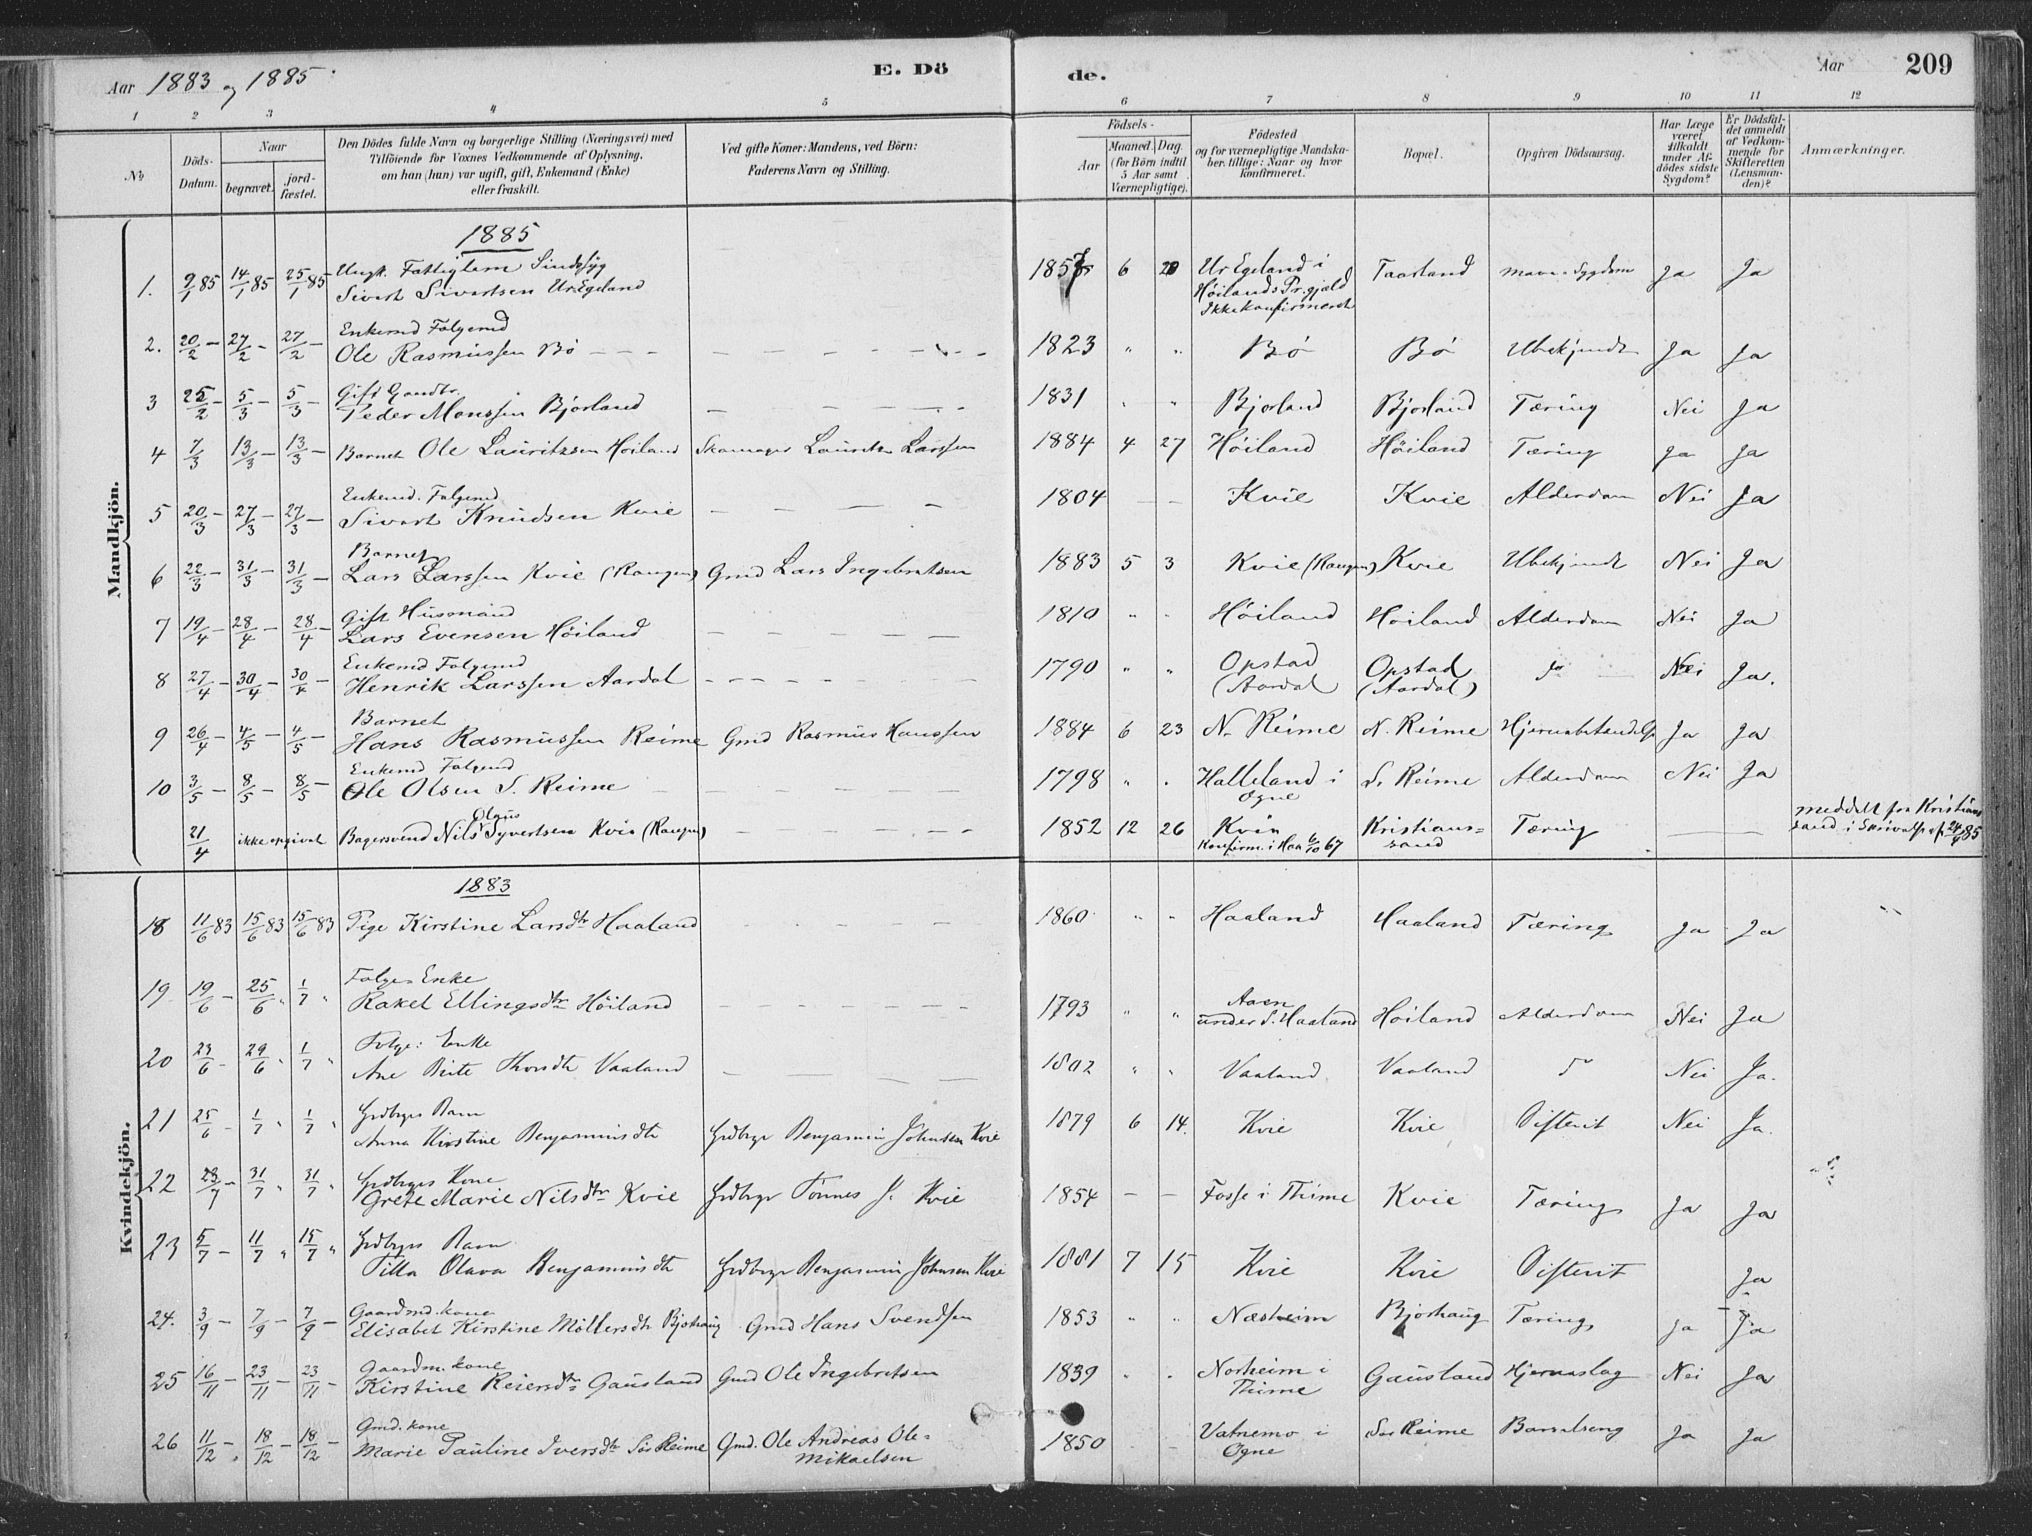 Aar 1883 og 1885
E. Döde.
Aar
209
1 2 3 4 5 6 7 8 9 10 11 12
No
Döds-Datum.
Naar
begravet.
jordfæstet.
Den Dödes fulde Navn og borgerlige Stilling (Næringsvei) med
Tilföiende for Voxnes Vedkommende af Oplysning,
om han (hun) var ugift, gift, Enkemand (Enke)
eller fraskilt.
Ved gifte Koner: Mandens, ved Börn:
Faderens Navn og Stilling.
Födsels-
Aar
Maaned. Dag.
(for Börn indtil
5 Aar samt
Værnepligtige).
Födested
og for værnepligtige Mandska-
ber tillige: Naar og hvor
konfirmeret.
Bopæl.
Opgiven Dödsaarsag.
Har Læge
været
tilkaldt
under Af-
dödes sidste
Sygdom?
Er Dödsfal-
det anmeldt
af Vedkom-
mende for
Skifteretten
(Lensman-
den)?
Anmærkninger.
Mandkjön.
1885
1. 9/1 85 14/1 85 25/1 85 Ungk. Fattiglem Sindssyg
Sivert Sivertsen Ur.Egeland 6 20 Ur Egeland i Høilands Pr.gjeld Ikke konfirmeret Taarland Mave-Sygdom Ja Ja
2. 20/2 – 27/2 – 27/2 – Enkemd Folgemd
Ole Rasmussen Bö 1823 " " Bö Bö Ubekjendt Ja Ja
3 25/2 – 5/3 – 5/3 – Gift Gaardbr.
Peder Monssen Bjorland 1831 " " Bjorland Bjorland Tæring Nei Ja
4 7/3 13/3 – 13/3 – Barnet Ole Lauritzsen Høiland Skomager Lauritz Larssen 1884 4 27 Höiland Höiland Tæring Ja Ja
5 20/3 – 27/3 – 27/3 – Enkemd. Folgemd
Sivert Knudsen Kvie 1804 Kvie Kvie Alderdom Nei Ja
6 22/3 – 31/3 – 31/3 – Barnet
Lars Larssen Kvie (Raugen) Gmd Lars Ingebretsen 1883 5 3 Kvie (Raugen) Kvie Ubekjendt Nei Ja
7 19/4 – 28/4 – 28/4 – Gift Husmand
Lars Evensen Höiland 1810 " " Höiland Höiland Alderdom Nei Ja
8 27/4 – 30/4 – 30/4 – Enkemd Folgemd
Henrik Larssen Aardal 1790 " " Opstad (Aardal Opstad (Aardal) do Nei Ja.
9 26/4 – 4/5 – 4/5 – Barnet
Hans Rasmussen Reime Gmd Rasmus Hanssen 1884 6 23 N. Reime N. Reime Hjernebetændelse Ja Ja
10 3/5 – 8/5 – 8/5 – Enkemd Folgemd
Ole Olsen S. Reime 1798 " " Halleland i Ogne S. Reime Alderdom Nei Ja
21/4 ikke opgivet Bagersvend Nils Olaus Syvertsen Kvie (Raugen) 1852 12 26 Kvie Konfirm. i Haa 6/10 67 Kristianssand Tæring meddelt fra Kristianssand i Skrivelse af 24/9 85
Kvindekjön.
1883
18 11/6 83 15/6 83 15/6 83 Pige Kirstine Larsdtr Haaland 1860 " " Haaland Haaland Tæring Ja Ja
19 19/6 – 25/6 " 1/7 " Folge-Enke
Rakel Ellingsdtr Höiland 1793 " " Aaen under S. Haaland Höiland Alderdom Nei Ja
20 23/6 – 29/6 " 1/7 " Folge: Enke
Ane Brite Thorsdtr Vaaland 1802 " " Vaaland Vaaland do Nei Ja.
21 25/6 – 1/7 " 1/7 " Grdbrgs Barn
Anna Kirstine Benjaminsdtr Grdbrgr Benjamin Johnsen Kvie 1879 6 14. Kvie Kvie Difterit Nei Ja.
22 23/7 – 31/7 " 31/7 " Grdbrgrs Kone
Grete Marie Nilsdtr Kvie Grdbrgr Tönnes J. Kvie 1854 – – Fosse i Thime Kvie Tæring Ja Ja
23 5/7 – 11/7 " 15/7 " Grdbrgrs Barn
Pilla Olava Benjaminsdtr Grdbrgr Benjamin Johnsen Kvie 1881 7 15 Kvie Kvie Difterit Ja
24. 3/9 – 7/9 – 7/9 – Gaardmd. kone
Elisabet Kirstine Möllersdtr Bjorhaug Gmd Hans Svendsen 1853 " " Næsheim Bjorhaug Tæring Ja Ja
25 16/11 – 23/11 – 23/11 – Gaardm. kone
Kirstine Reiersdtr Gausland Gmd Ole Ingebretsen 1839 " " Norheim i Thime Gausland Hjerneslag Nei Ja
26 11/12 – 18/12 – 18/12 – Gmd. kone
Marie Pauline Iversdtr Sör Reime Gmd. Ole Andreas Ole-Mikaelsen 1850 Vatnemo i Ogne Sör Reime Barselseng Ja Ja